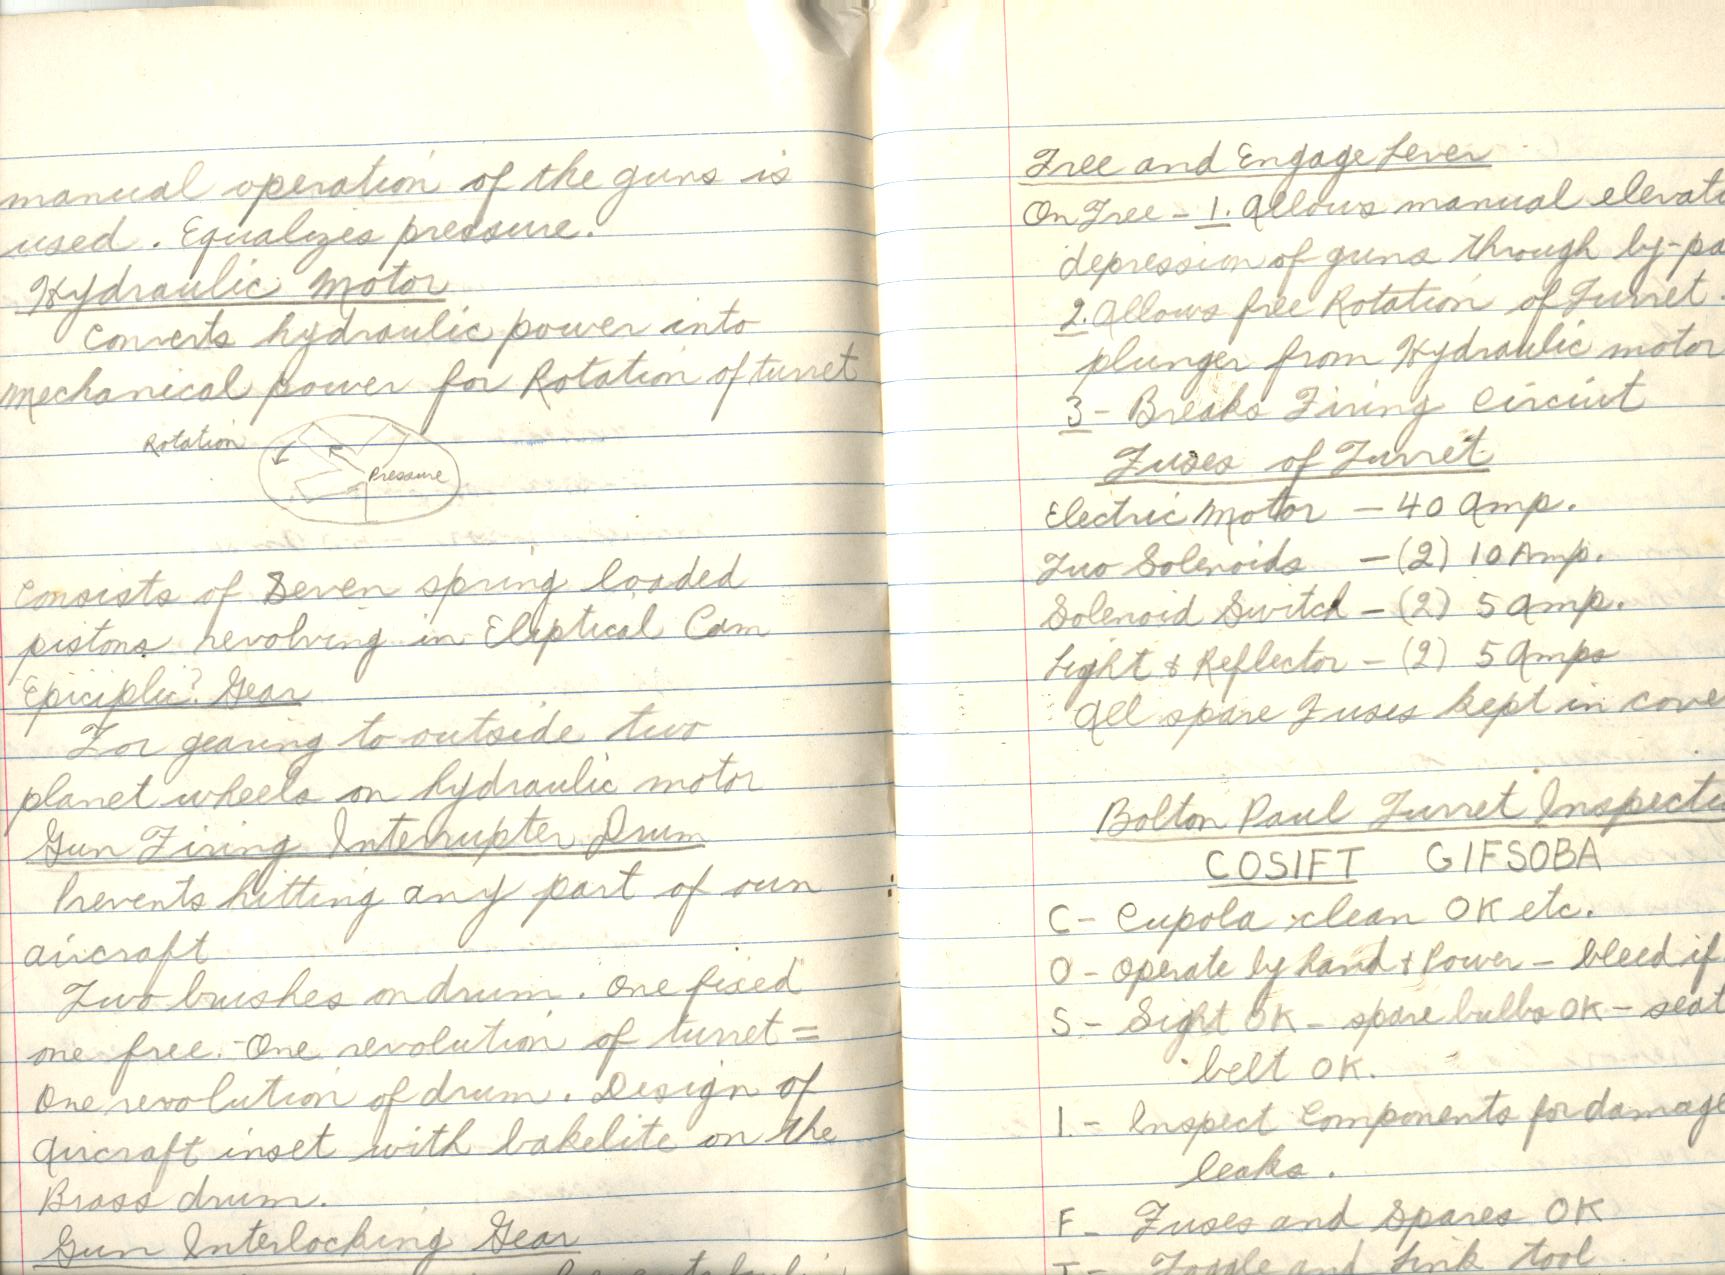 manual operation of the guns is
used. Equalizes pressure.
Hydraulic Motor
Converts hydraulic power into
Mechanical power for Rotation of turret
Rotation
Pressure
Consists of Seven spring loaded
pistons revolving in Eliptical Cam
Epiciplic? Gear
For gearing to outside two
planet wheels on hydraulic motor
Gun Firing Interrupter Drum
Prevents hitting any part of own
aircraft
Two brushes on drum. One fixed
one free. - One revolution of turret =
One revolution of drum. Design of
Aircraft inset with bakelite on the
Brass drum.
Gun Interlocking Gear
Free and Engage Lever
On Free - 1. Allows manual elevati
depression of guns through by-pa
2. Allows free Rotation of Turret.
plunger from Hydraulic motor
3- Breaks Firing Circuit
Fuses of Turret
Electric Motor - 40 Amp.
Two Solenoids - (2) 10 Amp.
Solenoid Switch - (2) 5 Amp.
Light & Reflector - (2) 5 Amps
All spare Fuses kept in cove
Bolton Paul Turret Inspecti
COSIFT GIFSOBA
C - Cupola clean OK etc.
O - Operate by hand & Power - bleed if
S - Sight OK - spare bulbs OK - seat
belt OK.
I. - Inspect Components for damage
leaks.
F - Fuses and Spares OK
T - Toggle and Link tool